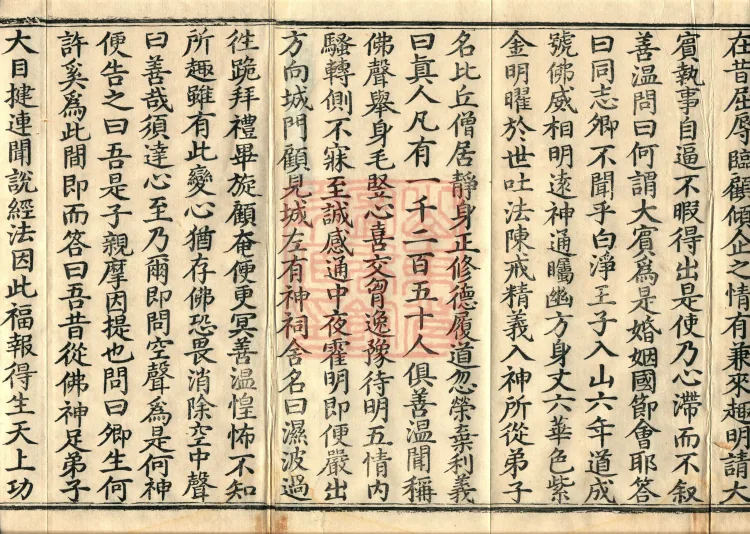 在昔屈辱臨顧傾企之情有兼來趣明請大
賓執事自逼不暇得出是使乃心滯而不叙
善溫問曰何謂大賓爲是婚姻國節會耶答
曰同志卿不聞乎白淨王子入山六年道成
號佛威相明遠神通矚幽方身丈六華色紫
金明曜於世吐法陳戒精義入神所從弟子
名比丘僧居靜身正修德履道忽榮棄利義
曰真人凡有一千二百五十人俱善溫聞稱
佛聲舉身毛竪心喜交胷逸豫待明五情內
騷轉側不寐至誠感通中夜霍明即便嚴出
方向城門顧見城左有神祠舍名曰濕波過
往跪拜禮畢旋顧奄便更冥善溫惶怖不知
所趣雖有此變心猶存佛恐畏消除空中聲
曰善哉須達心至乃爾即問空聲爲是何神
便告之曰吾是子親摩因提也問曰卿生何
許奚爲此間即而答曰吾昔從佛神足弟子
大目揵連聞說經法因此福報得生天上功